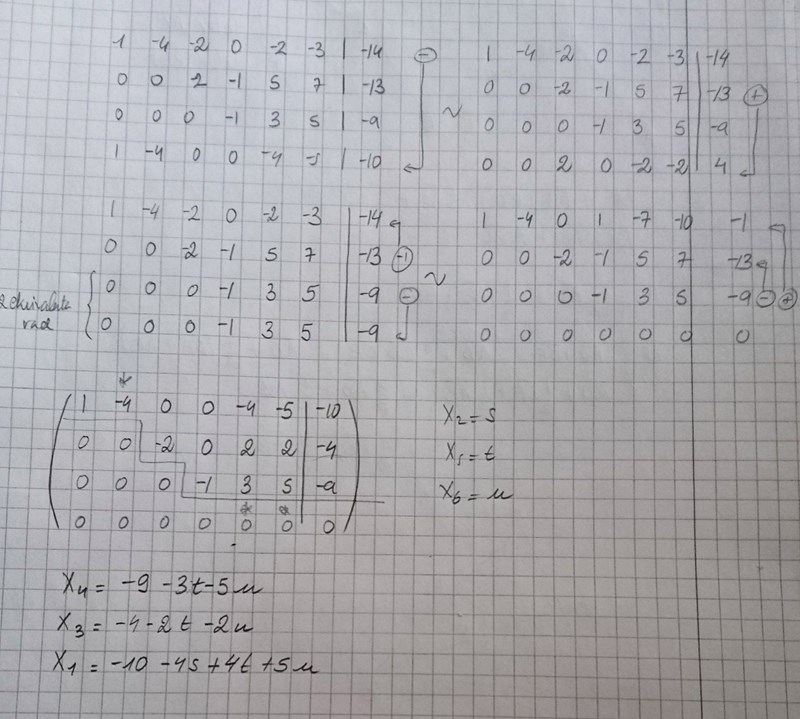 1 -4 -2 0 -2 -3 | -14 ⊖
0 0 2 -1 5 7 | -13
0 0 0 -1 3 5 | -9
1 -4 0 0 -4 -5 | -10
~
1 -4 -2 0 -2 -3 | -14
0 0 -2 -1 5 7 | -13 ⊕
0 0 0 -1 3 5 | -9
0 0 2 0 -2 -2 | 4
1 -4 -2 0 -2 -3 | -14
0 0 -2 -1 5 7 | -13 (-1)
0 0 0 -1 3 5 | -9 ⊖
0 0 0 -1 3 5 | -9
~
1 -4 0 1 -7 -10 -1
0 0 -2 -1 5 7 -13
0 0 0 -1 3 5 -9 ⊖ ⊕
0 0 0 0 0 0 0
*
1 -4 0 0 -4 -5 | -10
0 0 -2 0 2 2 | -4
0 0 0 -1 3 5 | -9
* *
0 0 0 0 0 0 | 0
x2 = s
x5 = t
x6 = u
x4 = -9 -3t -5u
x3 = -4 -2t -2u
x1 = -10 -4s +4t +5u